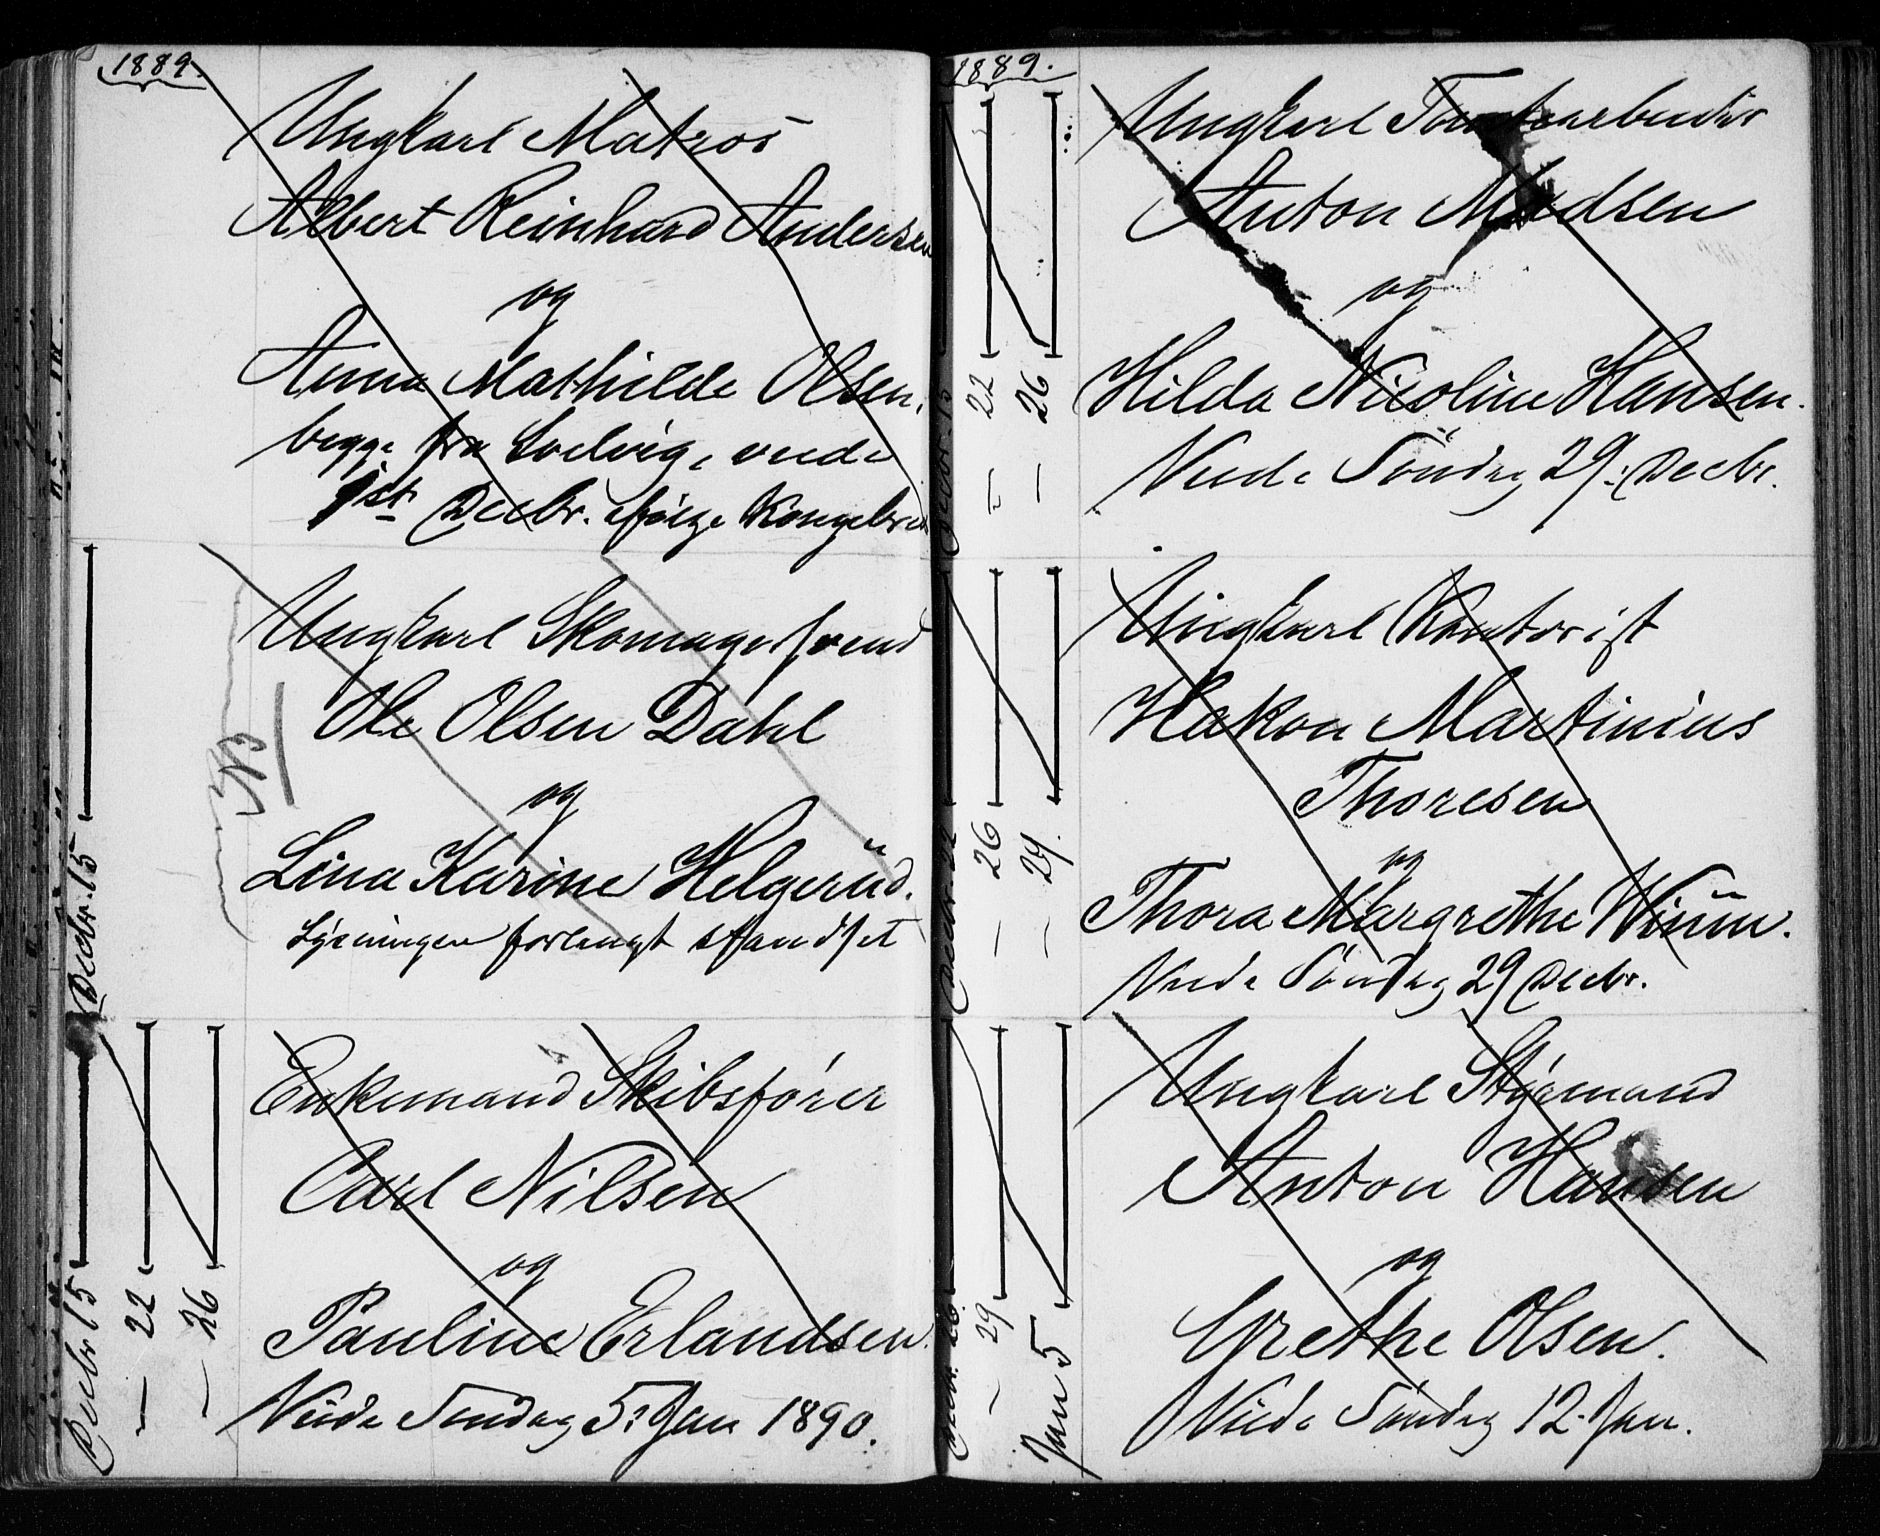 1889.
Ungkarl Matros
Albert Reinhard Andersen
og
Anna Mathilde Olsen,
begge fra Solvig, viede
1st Decbr. ifølge Kongebrev
Decbr. 15
Ungkarl Skomagersvend
Ole Olsen Dahl
NB
og
Lina Karine Helgerud.
Lysningen forlangt standset
Decbr 15
— 22
— 26
Enkemand Skibsfører
Carl Nilsen
og
Pauline Erlandsen.
Viede Søndag 5. Jan 1890.
1889.
Decbr. 15
— 22
— 26
Ungkarl Tomtearbeider
Anton Madsen
og
Hilda Nicoline Hansen.
Viede Søndag 29. Decbr.
Decbr. 22
— 26
— 29.
Ungkarl Kontorist
Hakon Martinius
Thoresen
og
Thora Margrethe Wium.
Viede Søndag 29 Decbr.
Decbr. 26
— 29
Jan 5
Ungkarl Styrmand
Anton Hansen
og
Grethe Olsen.
Viede Søndag 12. Jan.